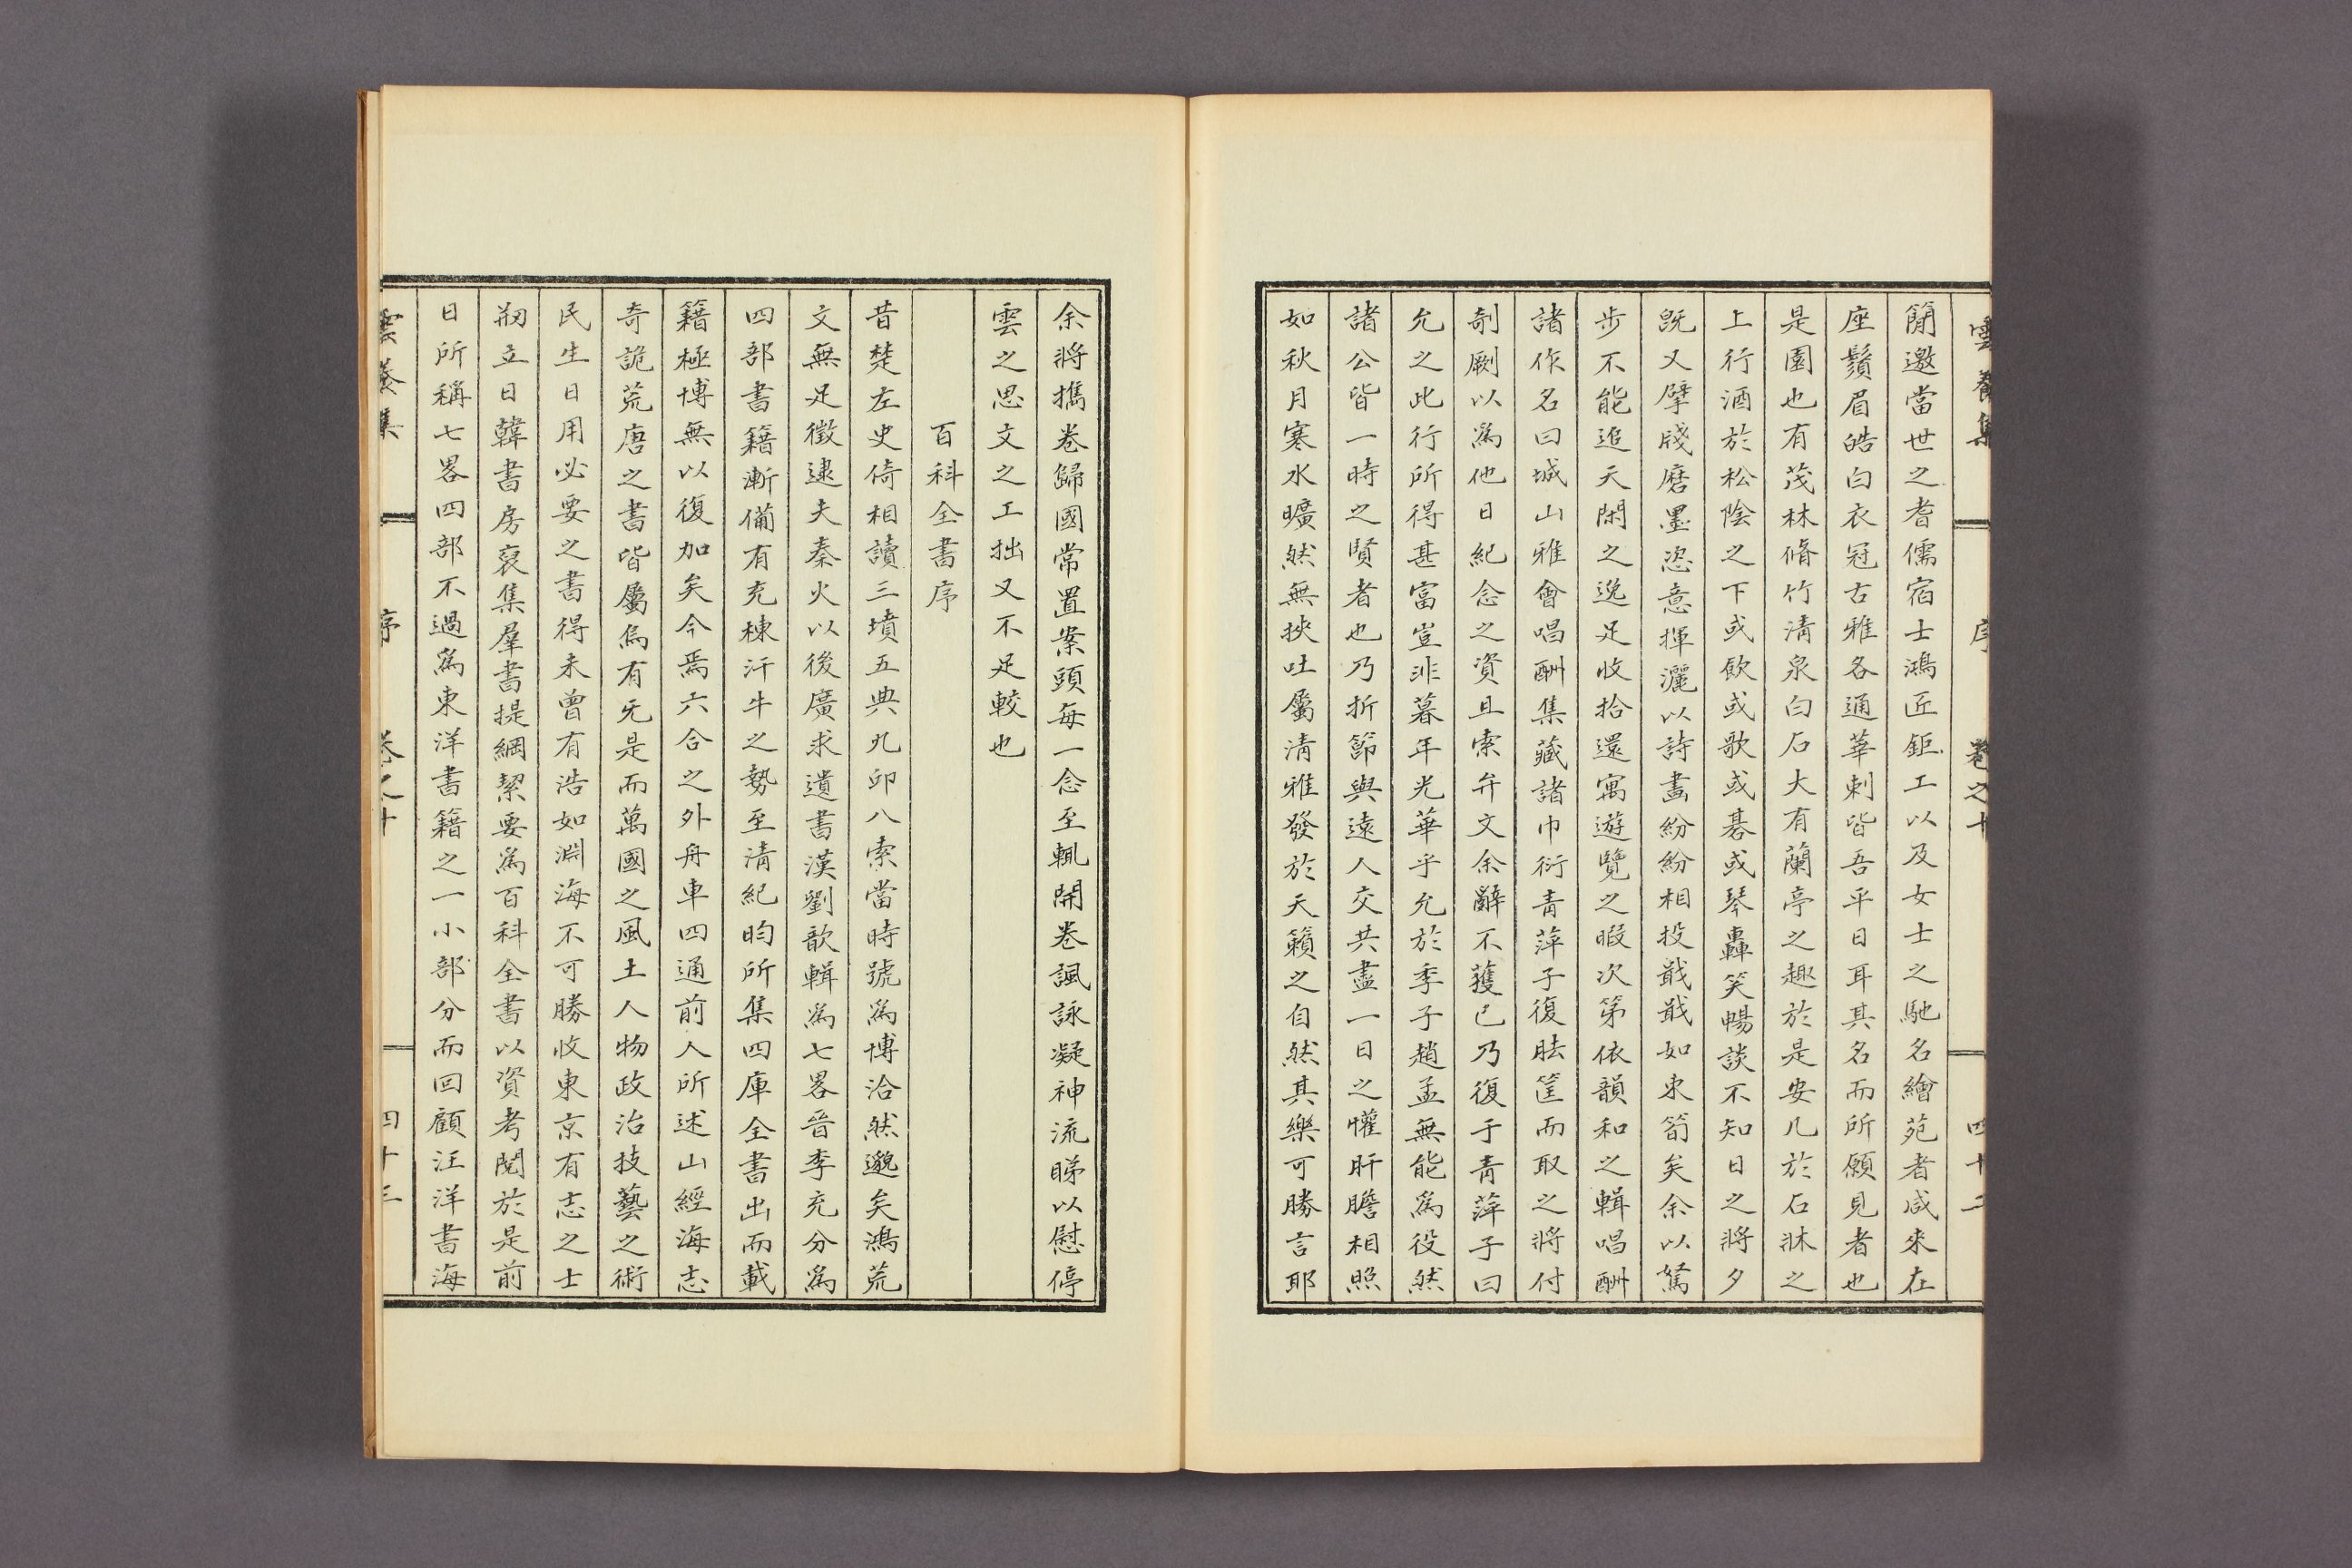 雲養集 序 卷之十 四十二
簡邀當世之耆儒宿士鴻匠鉅工以及女士之馳名繪苑者咸來在
座鬚眉皓白衣冠古雅各通華刺皆吾平日耳其名而所願見者也
是園也有茂林脩竹清泉白石大有蘭亭之趣於是安几於石牀之
上行酒於松陰之下或飮或歌或碁或琴轟笑暢談不知日之將夕
旣又擘牋磨墨恣意揮灑以詩畵紛紛相投戢戢如束筍矣余以駑
步不能追天閑之逸足收拾還寓遊覽之暇次第依韻和之輯唱酬
諸作名曰城山雅會唱酬集藏諸巾衍靑萍子復胠筐而取之將付
剞劂以爲他日紀念之資且索弁文余辭不獲已乃復于靑萍子曰
允之此行所得甚富豈非暮年光華乎允於季子趙孟無能爲役然
諸公皆一時之賢者也乃折節與遠人交共盡一日之懽肝膽相照
如秋月寒水曠然無挾吐屬清雅發於天籟之自然其樂可勝言耶
余將攜卷歸國常置案頭每一念至輒開卷諷詠凝神流睇以慰停
雲之思文之工拙又不足較也
百科全書序
昔楚左史倚相讀三墳五典九卯八索當時號爲博洽然邈矣鴻荒
文無足徵逮夫秦火以後廣求遺書漢劉歆輯爲七畧晉李充分爲
四部書籍漸備有充棟汗牛之勢至清紀昀所集四庫全書出而載
籍極博無以復加矣今焉六合之外舟車四通前人所述山經海志
奇詭荒唐之書皆屬烏有旡是而萬國之風土人物政治技藝之術
民生日用必要之書得未曾有浩如淵海不可勝收東京有志之士
剏立日韓書房裒集羣書提綱絜要爲百科全書以資考閱於是前
日所稱七畧四部不過爲東洋書籍之一小部分而回顧汪洋書海
雲養集 序 卷之十 四十三